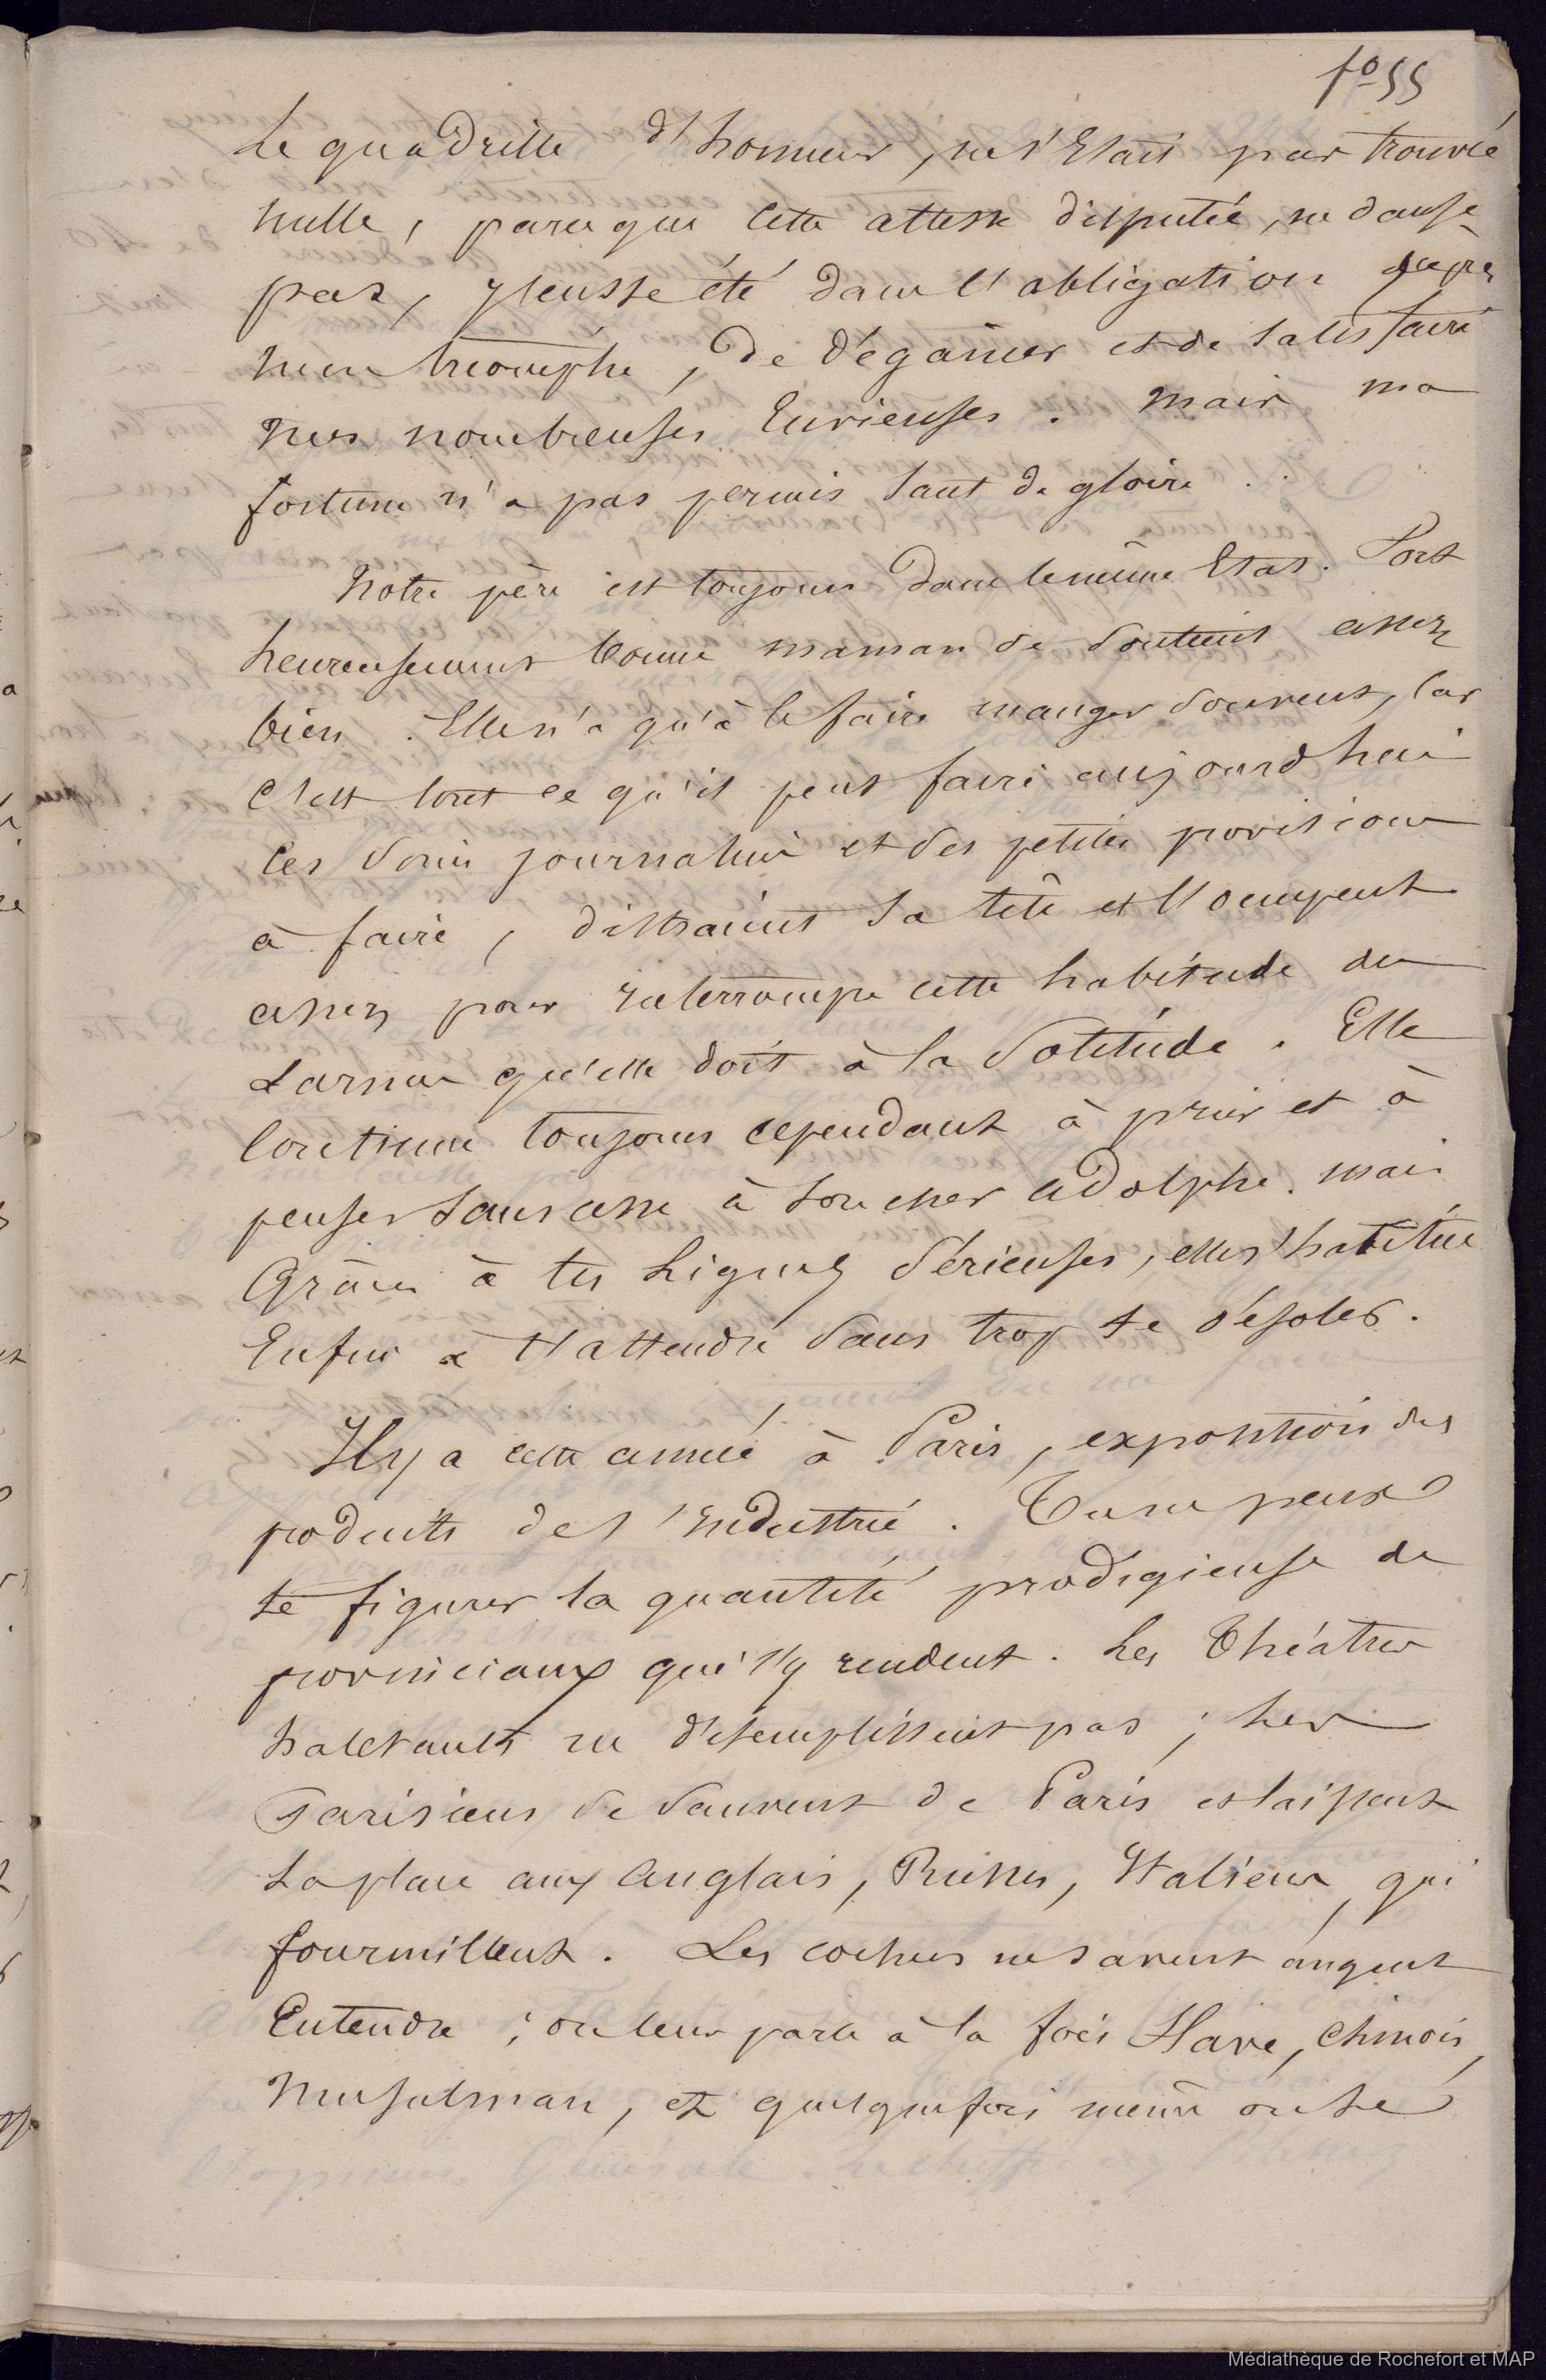 fo 55
Le quadrille d'honneur, ne s'Etait pas trouvé
nulle, parceque cette altesse disputée, ne danse
pas, j'eusse été dans l'obligation après
mon triomphe, de dégainer et de satisfaire
mes nombreuses Envieuses. Mais ma
fortune n'a pas permis tant de gloire ..
Notre père est toujours dans le même Etat. Fort
heureusement bonne maman se soutient assez
bien. Elle n'a qu'à le faire manger souvent, car
C'est tout ce qu'il peut faire aujourd'hui
Ces soins journaliers et des petites provisions
à faire, distraient sa tête et l'occupent
assez pour interrompre cette habitude de
Larmes qu'elle doit à la Solitude. Elle
Continue toujours cependant à prier et à
penser sans cesse à son cher Adolphe. mais
Grâces à tes Lignes sérieuses, elle s'habitue
Enfin à t'attendre sans trop se désoler.
Il y a cette année à Paris, exposition des
produits de l'industrie. Tu ne peux
te figurer la quantité prodigieuse de
provinciaux qui s'y rendent. Les Théâtres
haletants ne désemplissent pas ; Les
Parisiens se sauvent de Paris et laissent
La place aux Anglais, Russes, Italiens, qui
fourmillent. Les cochers ne savent auquel
Entendre ; on leur parle à la fois Slave, Chinois,
Musulman, et quelquefois même on se
Médiathèque de Rochefort et MAP